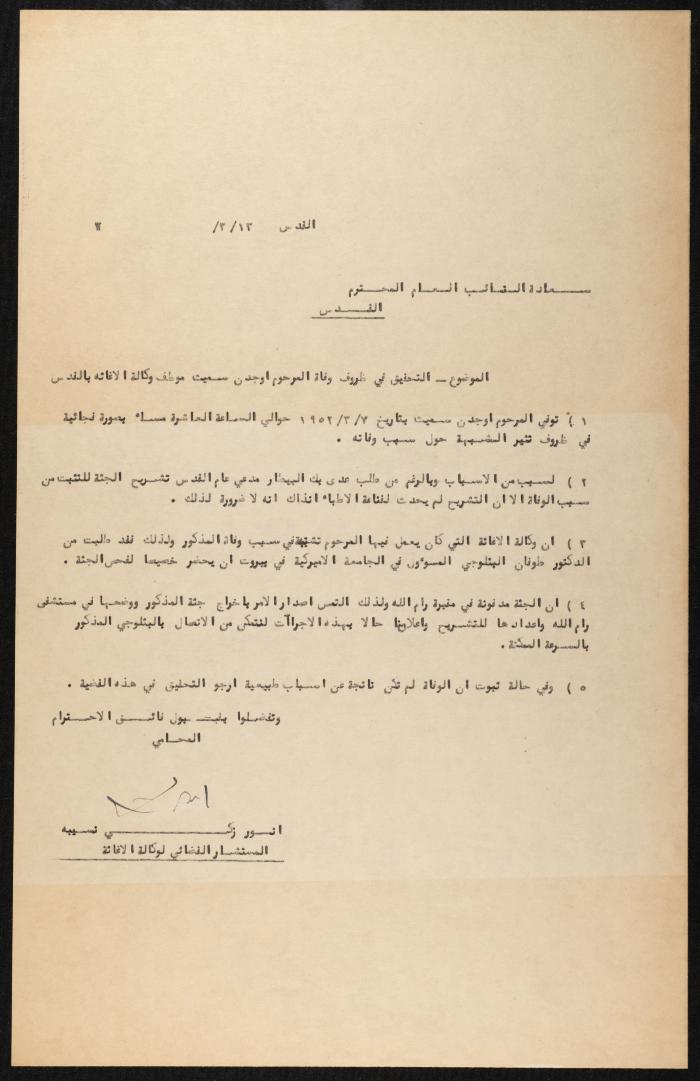 القدس ١٣/٣/
سعادة النائب العام المحترم
القدس
الموضوع ــ التحقيق في ظروف وفاة المرحوم اوجدن سميث موظف وكالة الاغاثه بالقدس
١ ) توفي المرحوم اوجدن سميث بتاريخ ١٩٥٢/٣/٧ حوالي الساعة العاشرة مساء بصورة فجائية
في ظروف تثير الشبهة حول سبب وفاته .
٢ ) لسبب من الاسباب وبالرغم من طلب عدي بك البيطار مدعي عام القدس تشريح الجثة للتثبت من
سبب الوفاة الا ان التشريح لم يحدث لقناعة الاطباء انذاك انه لا ضرورة لذلك .
٣ ) ان وكالة الاغاثة التي كان يعمل فيها المرحوم تشتبه في سبب وفاة المذكور ولذلك فقد طلبت من
الدكتور طوفان البثلوجي المسوؤن في الجامعة الاميركية في بيروت ان يحضر خصيصا لفحص الجثة .
٤ ) ان الجثة مدفونة في مقبرة رام الله ولذلك التمس اصدار الامر باخراج جثة المذكور ووضعها في مستشفى
رام الله واعدادها للتشريح واعلامنا حالا بهذه الاجراآت لنتمكن من الاتصال بالبثلوجي المذكور
بالسرعة الممكنة.
٥ ) وفي حالة ثبوت ان الوفاة لم تكن ناتجة عن اسباب طبيعية ارجو التحقيق في هذه القضية .
وتفضلوا بقبول فائق الاحترام
المحامي
انور زكي نسيبه
المستشار القضائي لوكالة الاغاثة